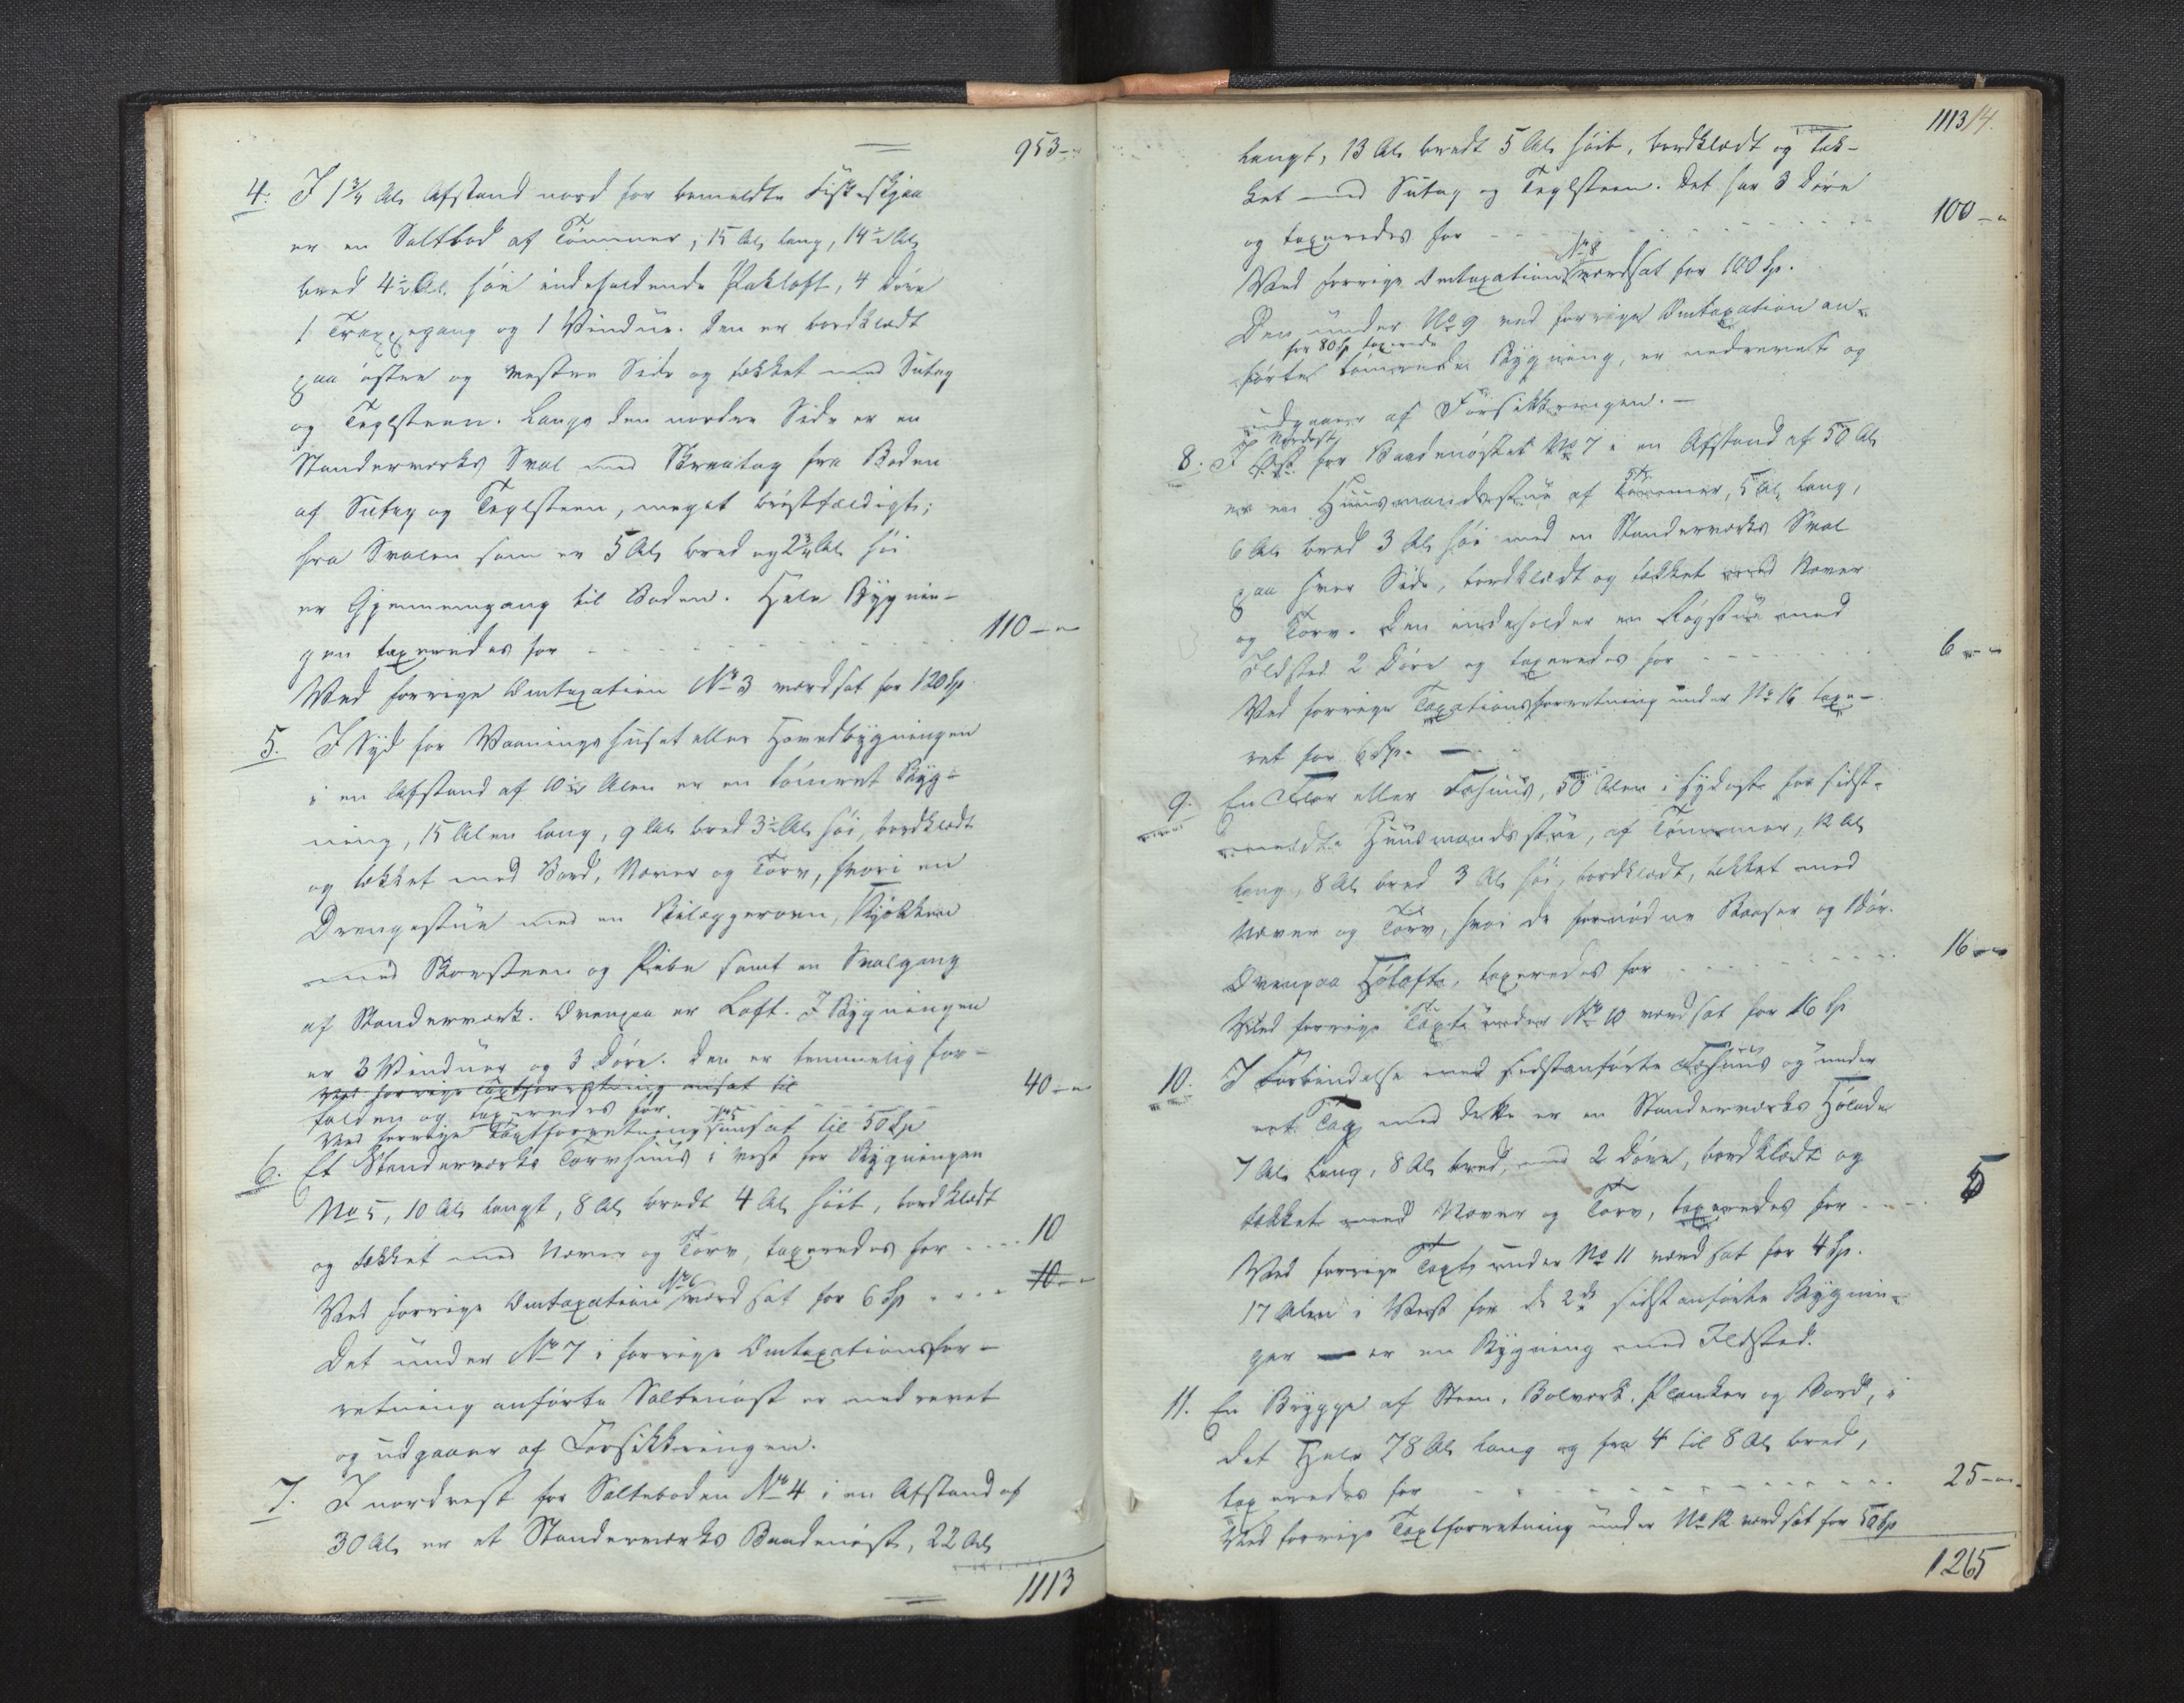 953 –
4. I 1 3/4 Al. Afstand nord for bemeldte Fiskeskjaa
er en Saltbod af Tømmer, 15 Al. lang, 14 1/2 Al.
bred 4 1/2 Al. høi indeholdende Pakloft, 4 Døre
1 Trappegang og 1 Vindue. Den er bordklædt
paa østre og vestre Side og tækket med Sutag
og Teglsteen. Langs den nordre Side er en
Standerværks Sval med Skraatag fra Boden
af Sutag og Teglsteen, meget brøstfældigt;
fra Svalen som er 5 Al. bred og 2 3/4 Al. høi
er Gjennemgang til Boden. Hele Bygnin-
gen taxeredes for - - - - - - 110 –
Ved forrige Omtaxation No 3 værdsat for 120 Sp.
5. I Syd for Vaaningshuset eller Hovedbygningen
i en Afstand af 10 1/2 Alen er en tømret Byg-
ning, 15 Alen lang, 9 Al. bred 3 1/2 Al. høi, bordklædt
og tækket med Bord, Næver og Torv, hvori en
Drengestue med en Bilæggerovn, Kjøkken
med Skorsteen og Pibe samt en Svalgang
af Standerværk. Ovenpaa er Loft. I Bygningen
er 3 Vinduer og 3 Døre. Den er temmelig for-
Ved forrige Taxtforretning ansat til
falden og taxeredes for - - - - - - 40 –
Ved forrige Taxtforretning No 5 ansat til 50 Sp
6. Et Standerværks Torvhuus i vest for Bygningen
No 5, 10 Al. langt, 8 Al. bredt 4 Al. høit, bordklædt
og tækket med Næver og Torv, taxeredes for - - - 10
Ved forrige Omtaxation No 6 værdsat for 6 Sp - - - 10 –
Det under No 7 i forrige Omtaxationsfor-
retning anførte Saltenøst er nedrevet
og udgaaer af Forsikkringen.
7. I nordvest for Salteboden No 4 i en Afstand af
30 Al. er et Standerværks Baadenøst, 22 Al.
1113
1113 / 4.
langt, 13 Al. bredt 5 Al. høit, bordklædt og tæk-
ket med Sutag og Teglsteen. Det har 3 Døre
og taxeredes for - - - - - - 100 –
Ved forrige Omtaxation No 8 værdsat for 100 Sp.
Den under No 9 ved forrige Omtaxation an-
for 80 Sp taxerede
førte tømrede Bygning, er nedrevet og
udgaaer af Forsikkringen. –
8. I Nordost for Baadenøstet No 7 i en Afstand af 50 Al.
er en Huusmandsstue af Tømmer, 5 Al. lang,
6 Al. bred 3 Al. høi med en Standerværks Sval
paa hver Side, bordklædt og tækket med Næver
og Torv. Den indeholder en Røgstue med
Ildsted 2 Døre og taxeredes for - - - - - 6 –
Ved forrige Taxationsforretning under No 16 taxe-
ret for 6 Sp. –
9. En Flor eller Fæhuus, 50 Alen i sydost for sidst-
meldte Huusmandsstue, af Tømmer, 12 Al.
lang, 8 Al. bred 3 Al. høi, bordklædt, tækket med
Næver og Torv, hvori de fornødne Baaser og 1 Dør.
Ovenpaa Høloft, taxeredes for - - - - - 16 –
Ved forrige Taxt under No 10 værdsat for 16 Sp
10. I Forbindelse med sidstanførte Fæhuus og under
eet Tag med dette er en Standerværks Hølade
7 Al. lang, 8 Al. bred, med 2 Døre, bordklædt og
tækket med Næver og Torv, taxeredes for - - - 5
Ved forrige Taxt under No 11 værdsat for 4 Sp.
17 Alen i Vest for de 2de sidstanførte Bygnin-
ger er en Bygning med Ildsted.
11. En Brygge af Steen, Bolværk, Planker og Bord, i
det Hele 78 Al. lang og fra 4 til 8 Al. bred,
taxeredes for - - - - - - 25 –
Ved forrige Taxtforretning under No 12 værdsat for 50 Sp
1265